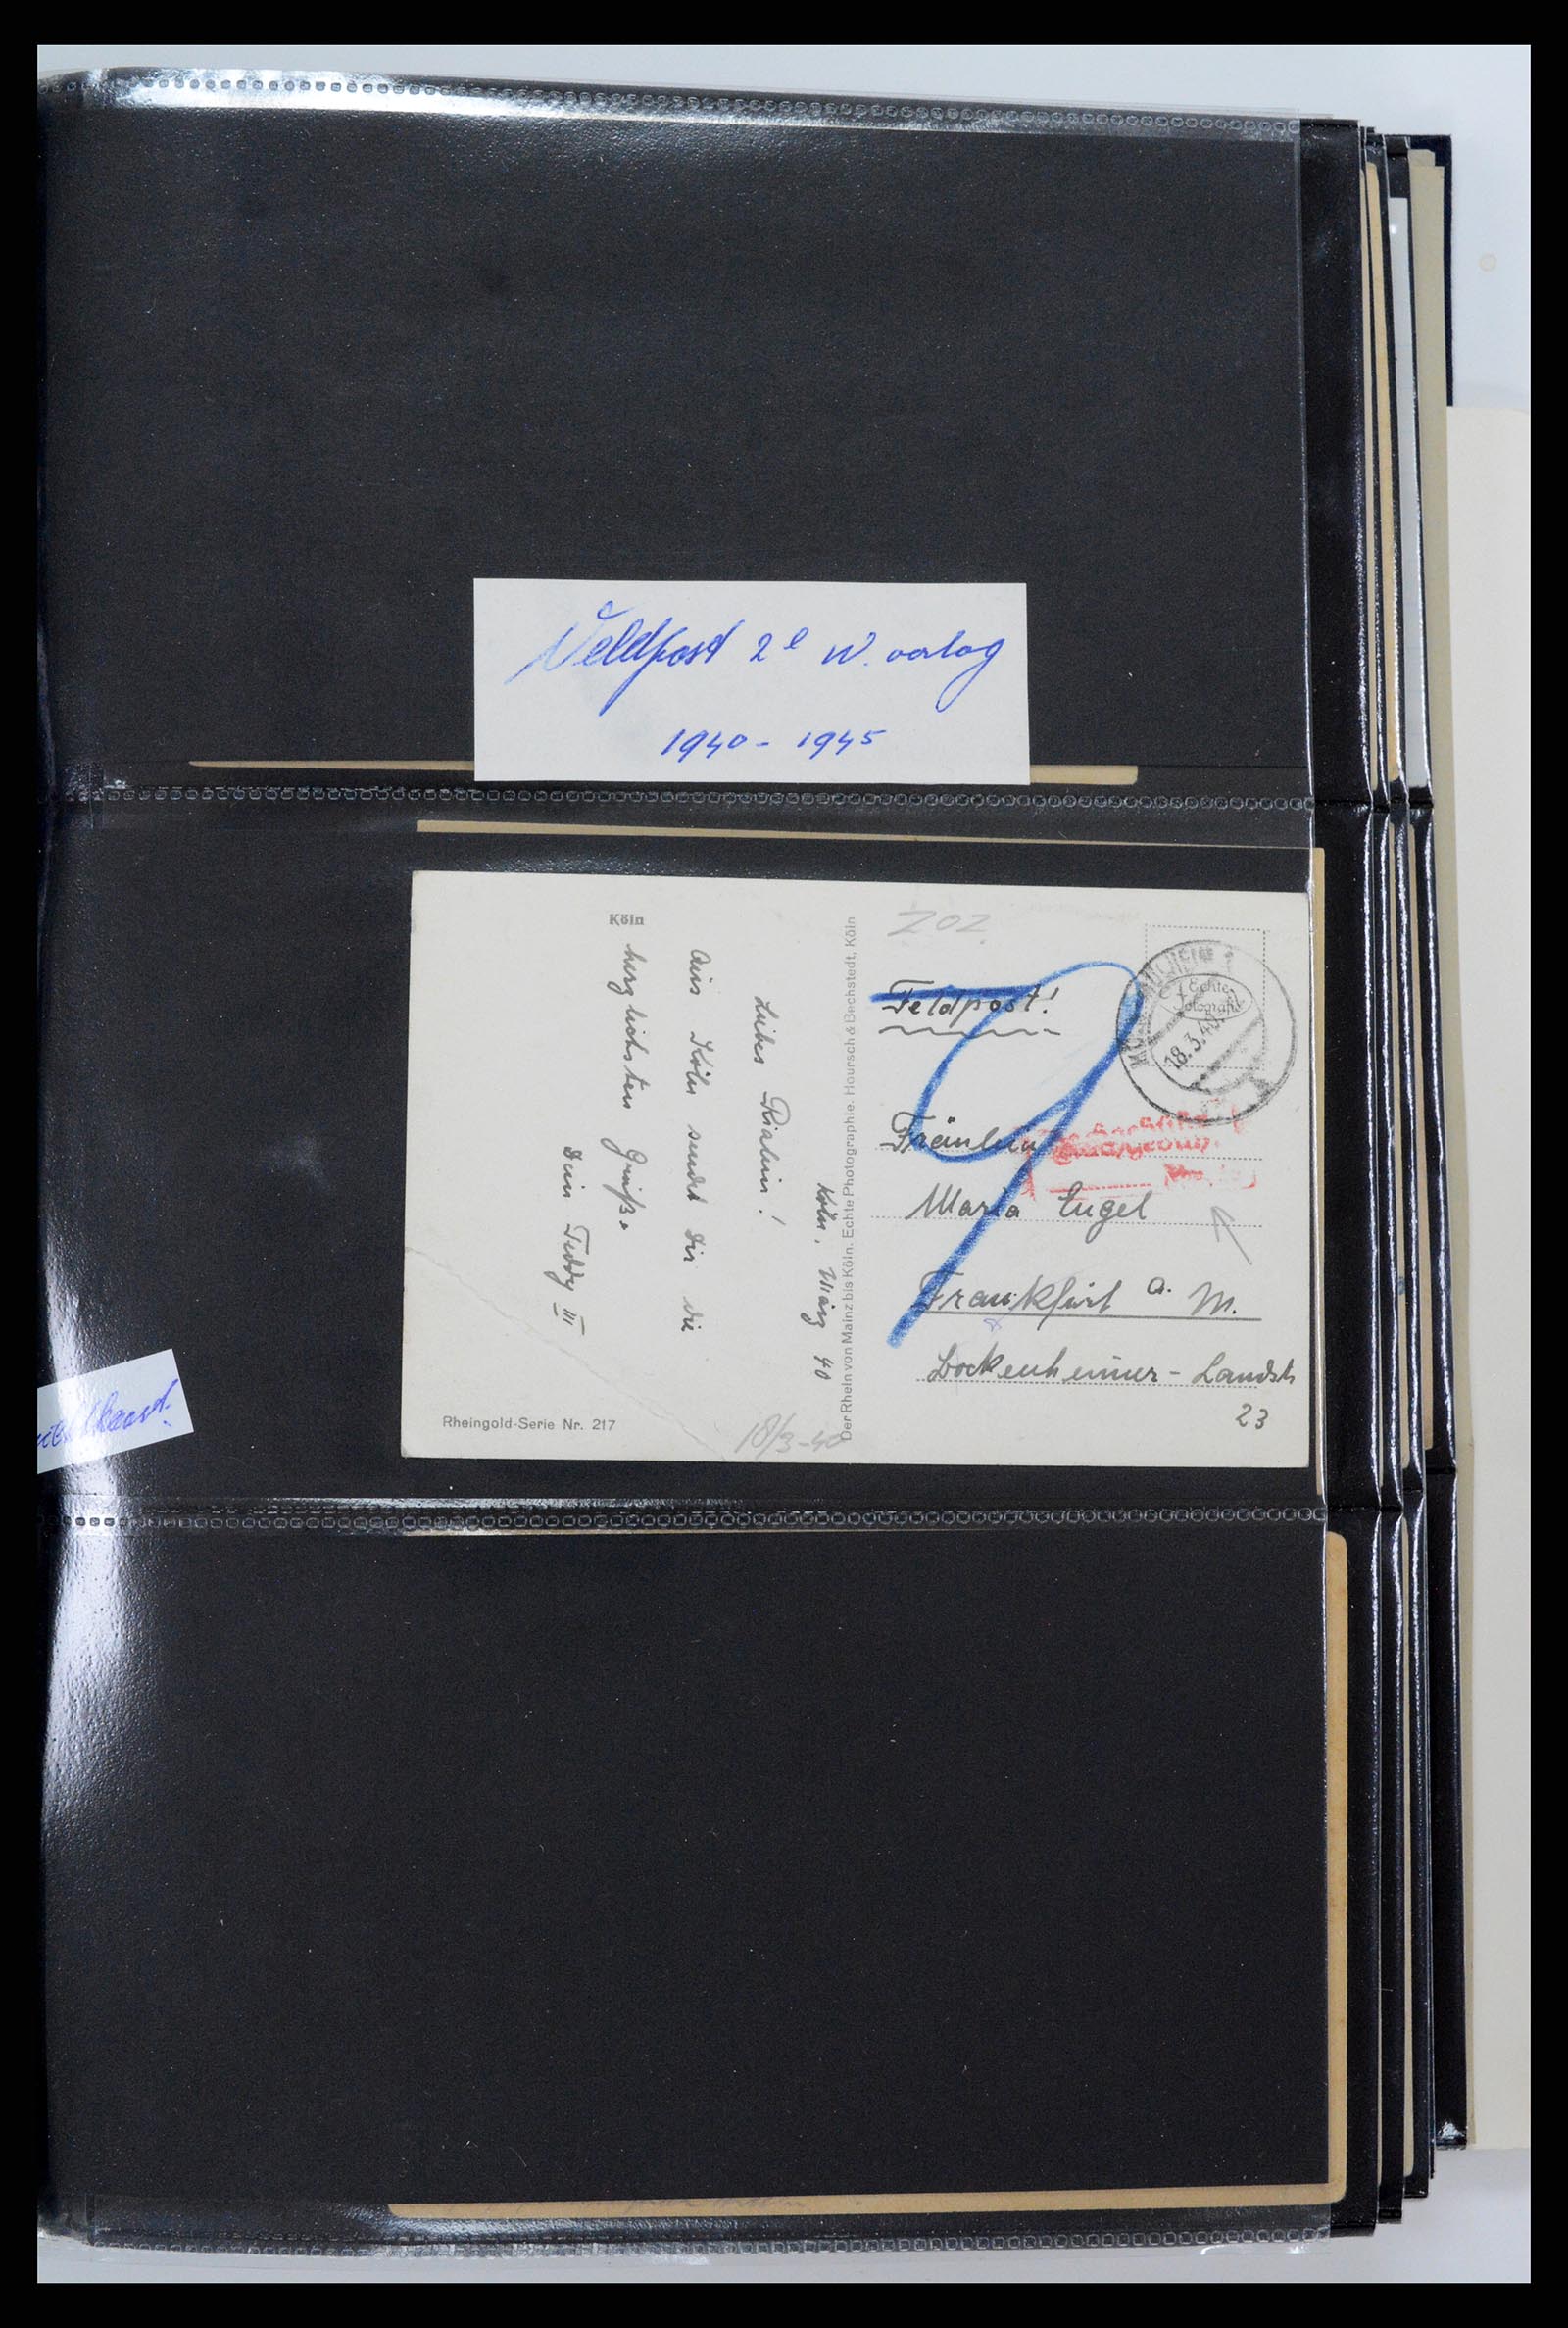 Veldpost 2e W. oorlog
1940 - 1945
Köln
Köln, März 40
Liebes Rialein!
Aus Köln sendet Dir die
herzlichsten Grüße
Dein Teddy III
Rheingold-Serie Nr. 217
18/3-40
Der Rhein von Mainz bis Köln. Echte Photographie. Hoursch & Bechstedt, Köln
202
Feldpost!
Echte
Fotografie
18.3.40
9
Fräulein
Nachgebühr
Maria Engel
Frankfurt a. M.
Bockenheimer-Landstr
23